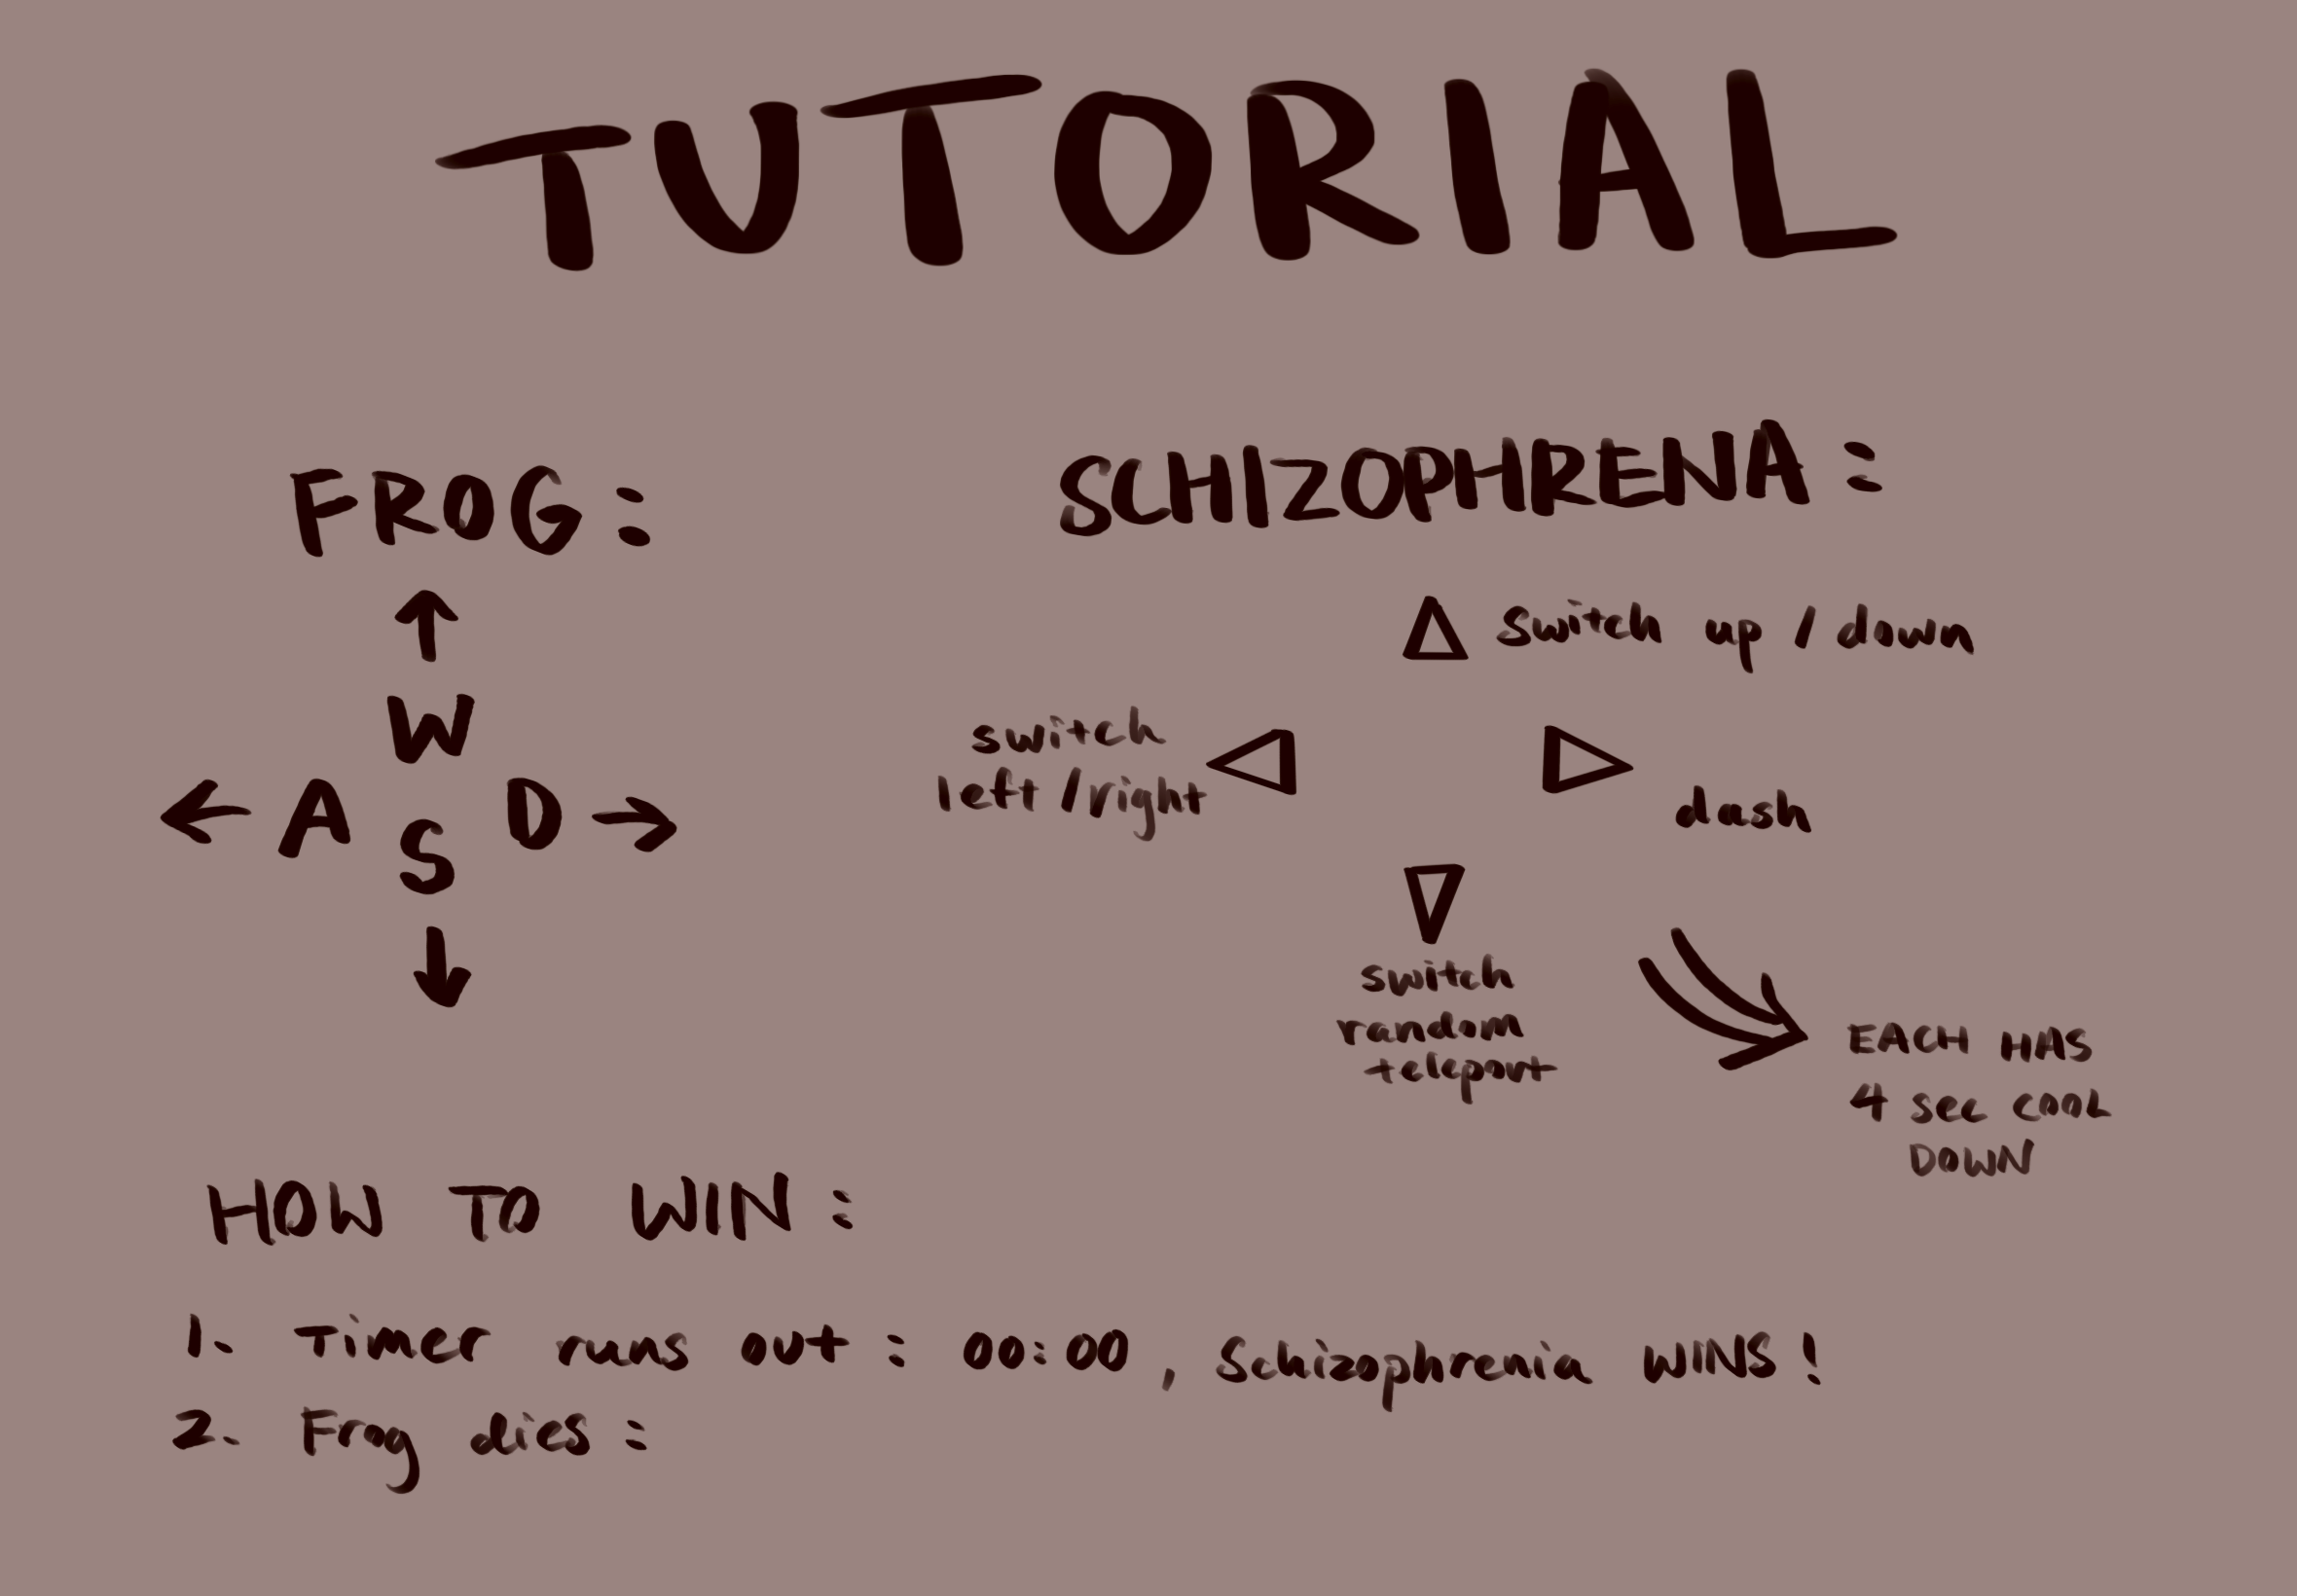 TUTORIAL
FROG:
W
A S D
SCHIZOPHRENA:
switch up / down
switch
left / right
dash
switch
random
teleport
EACH HAS
4 sec COOL
DOWN
HOW TO WIN:
1. Timer runs out: 00:00, Schizophrenia WINS!
2. Frog dies: